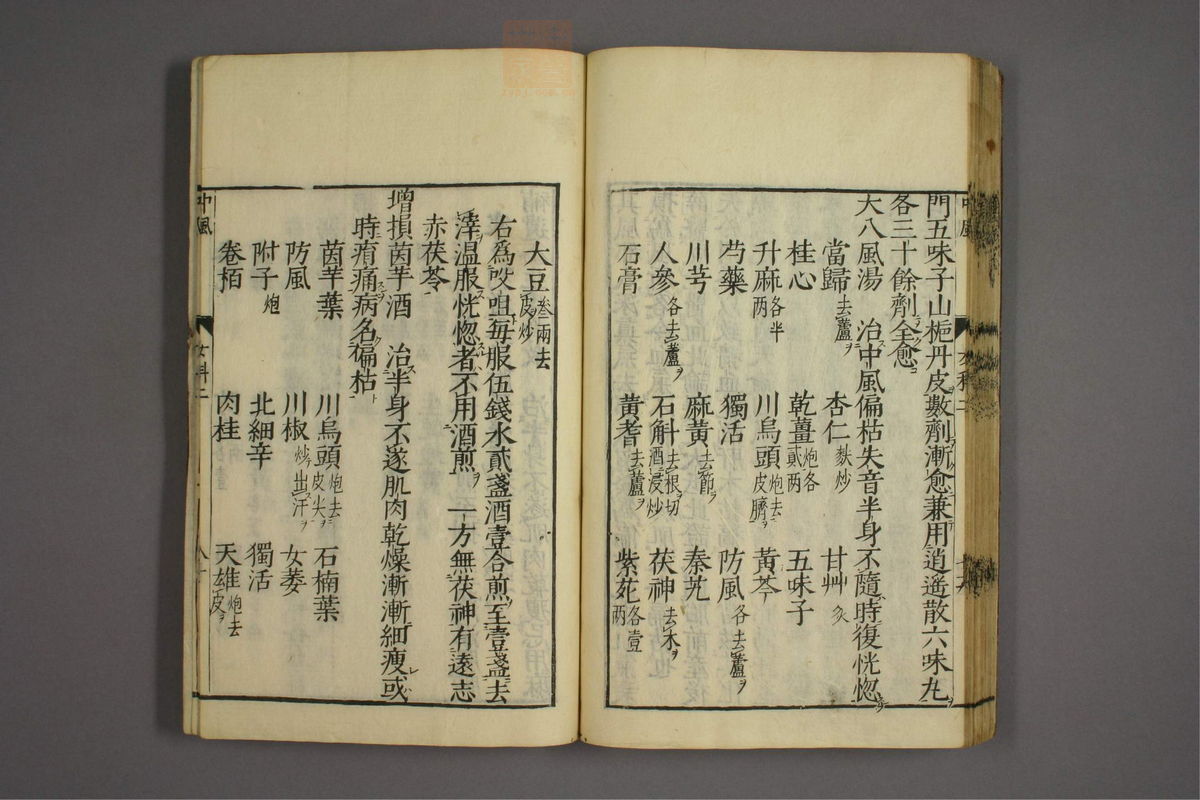 門五味子山梔丹皮數劑漸愈兼用逍遙散六味丸
各三十餘劑全愈
大八風湯　治中風偏枯失音半身不隨時復恍惚
當歸去蘆　杏仁麩炒　甘艸炙
桂心　乾薑炮各貳兩　五味子
升麻各半兩　川烏頭炮去皮臍　黃芩
芍藥　獨活　防風各去蘆
川芎　麻黃去節　秦艽
人參各去蘆　石斛去根切酒浸炒　茯神去木
石膏　黃耆去蘆　紫菀各壹兩
大豆叁兩去皮炒
右爲㕮咀每服伍錢水貳盞酒壹合煎至壹盞去
滓溫服恍惚者不用酒煎一方無茯神有遠志
赤茯苓
增損茵芋酒　治半身不遂肌肉乾燥漸漸細瘦或
時痟痛病名偏枯
茵芋葉　川烏頭炮去皮尖　石楠葉
防風　川椒炒出汗　女萎
附子炮　北細辛　獨活
卷栢　肉桂　天雄炮去皮
中風
女科二